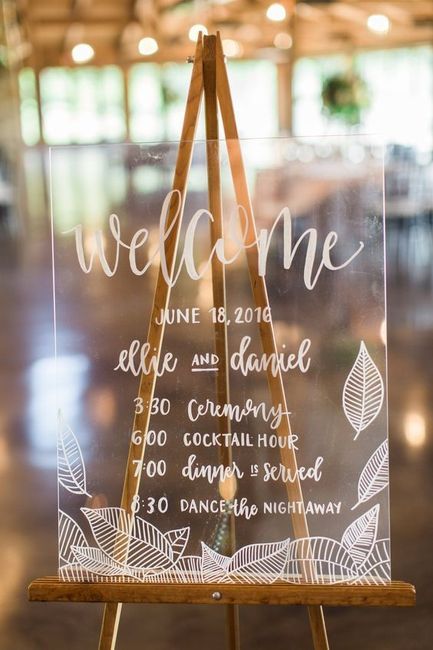 welcome
JUNE 18, 2016
ellie AND daniel
3:30 Ceremony
6:00 COCKTAIL HOUR
7:00 dinner is served
8:30 DANCE the NIGHT AWAY